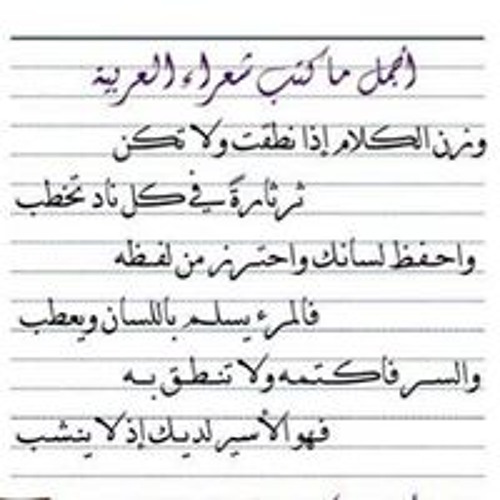 أجمل ما كتب شعراء العربية
وزن الكلام إذا نطقت ولا تكن
ثرثارةً في كل ناد تخطب
واحفظ لسانك واحترز من لفظه
فالمرء يسلم باللسان ويعطب
والسر فاكتمه ولا تنطق به
فهو الأسير لديك إذ لا ينشب